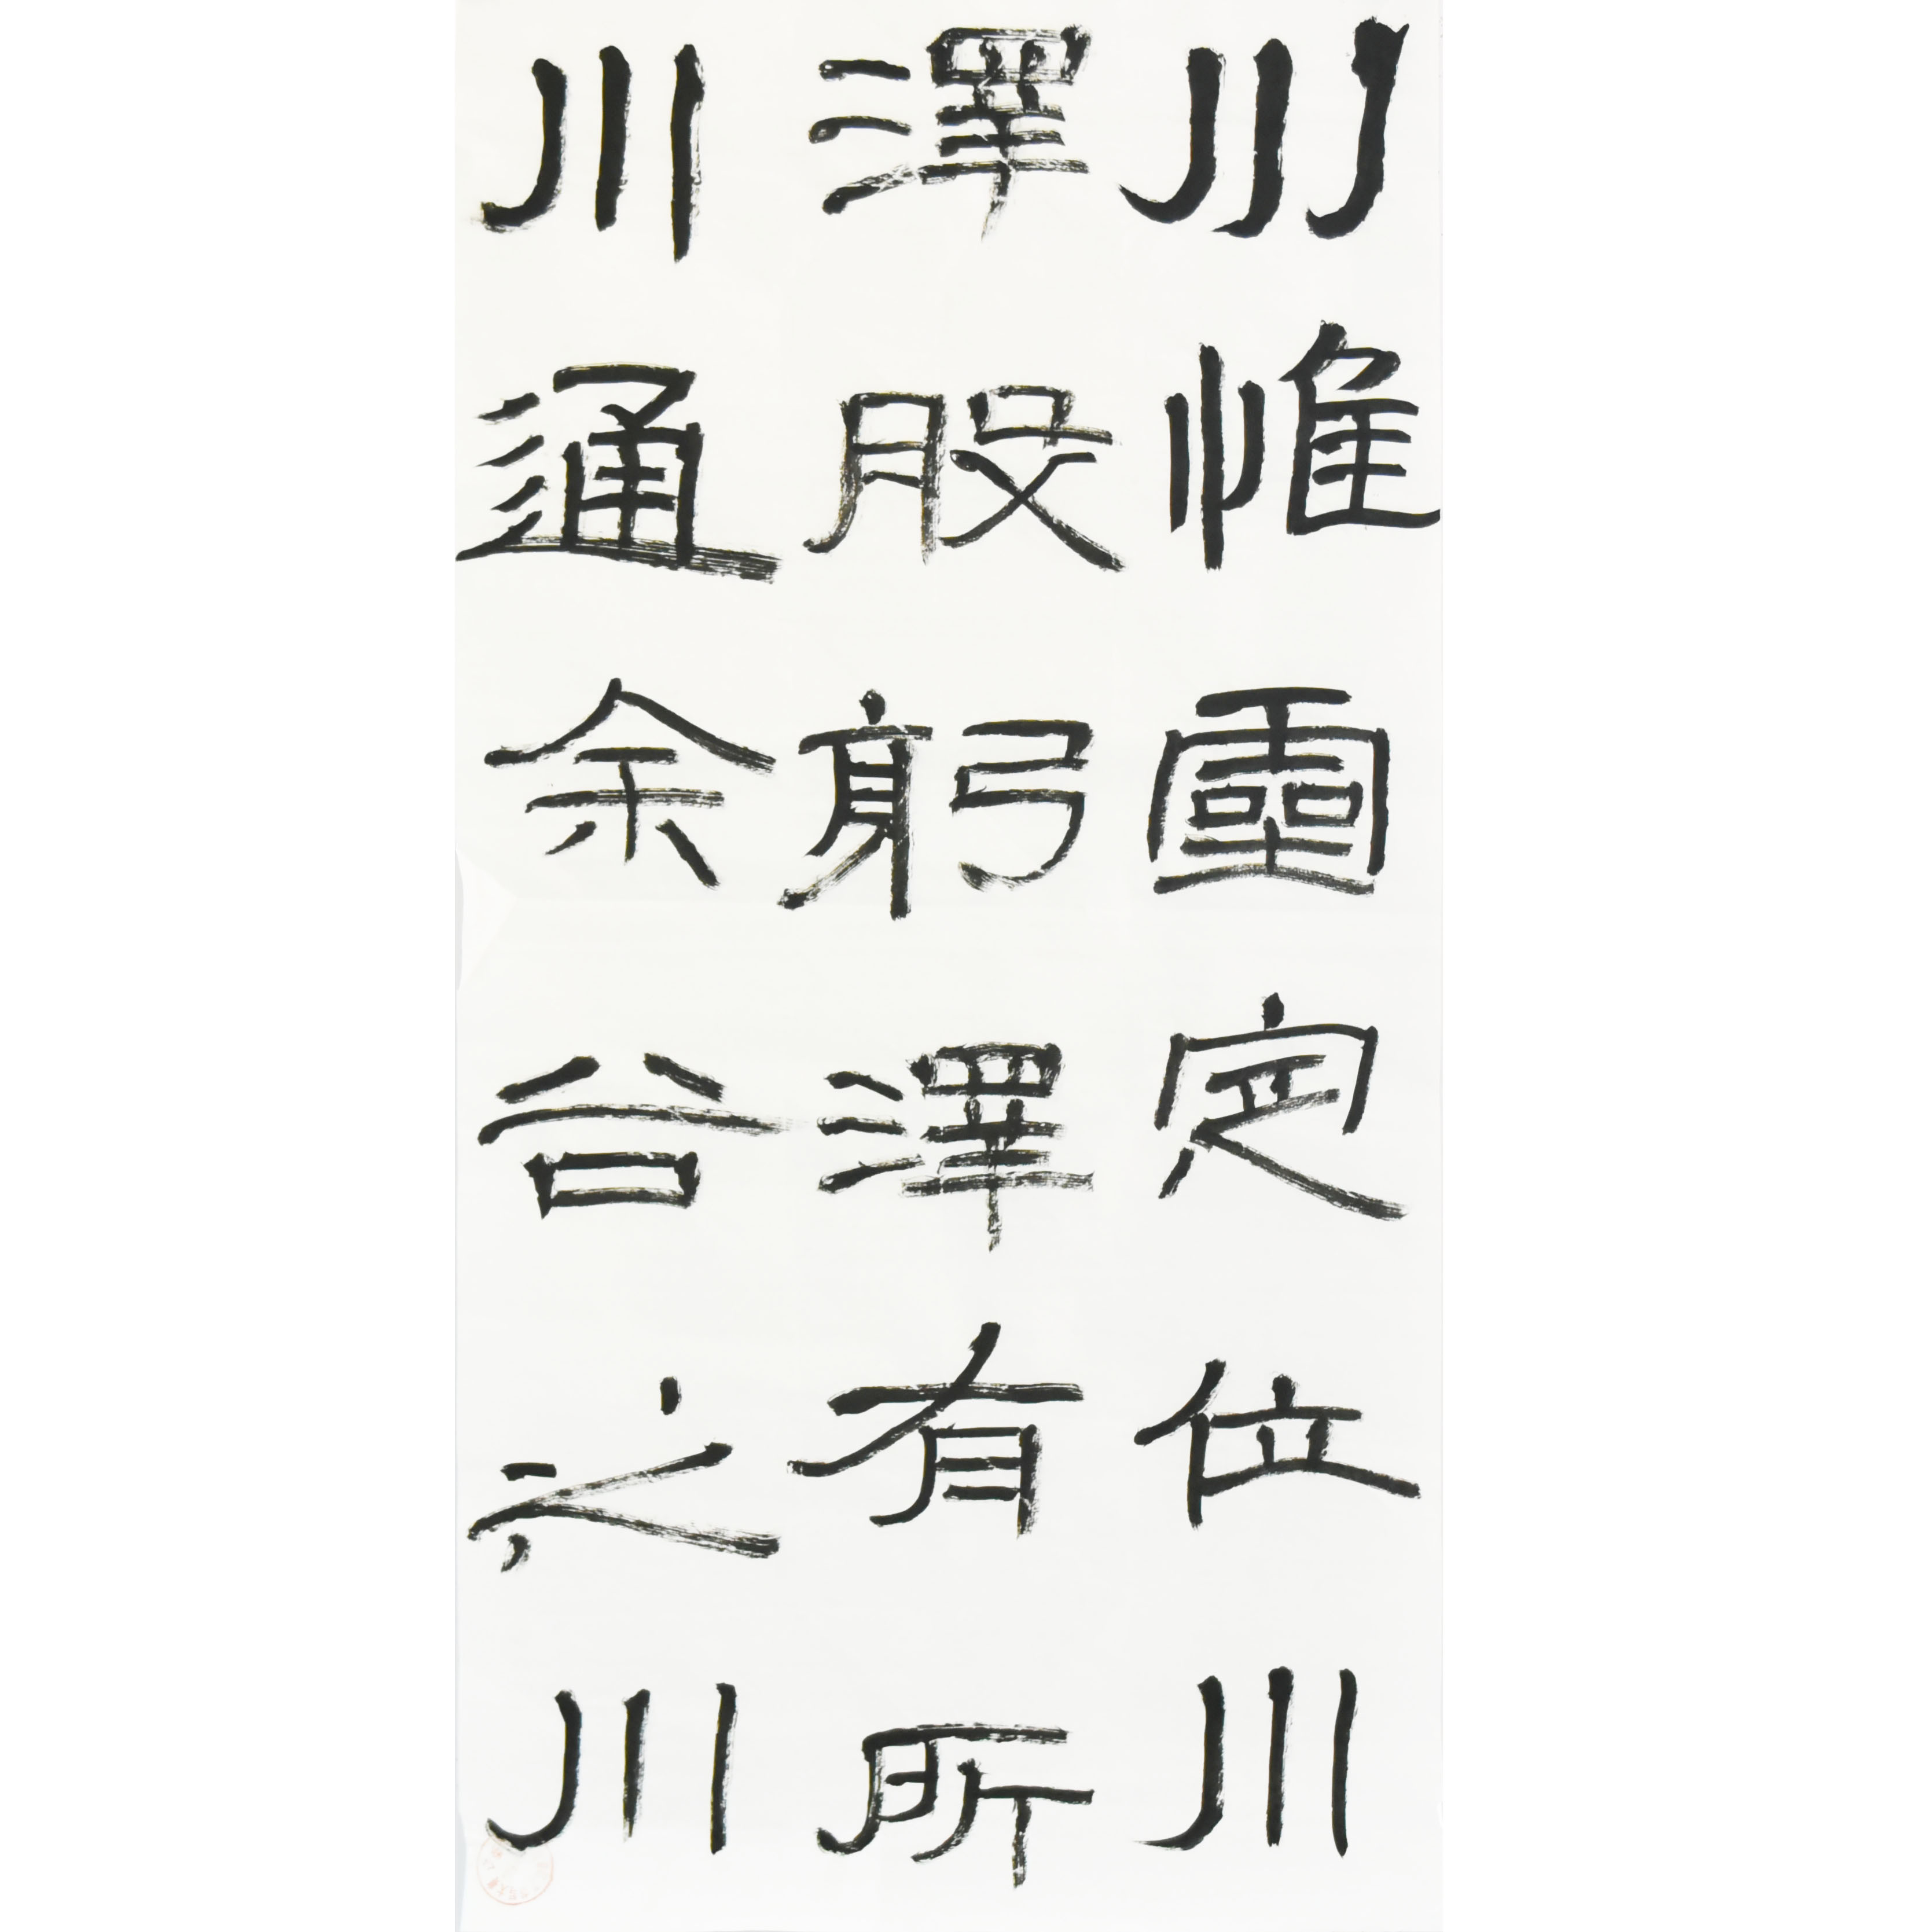 川惟靈定位川
澤股躬澤有所
川通余谷之川